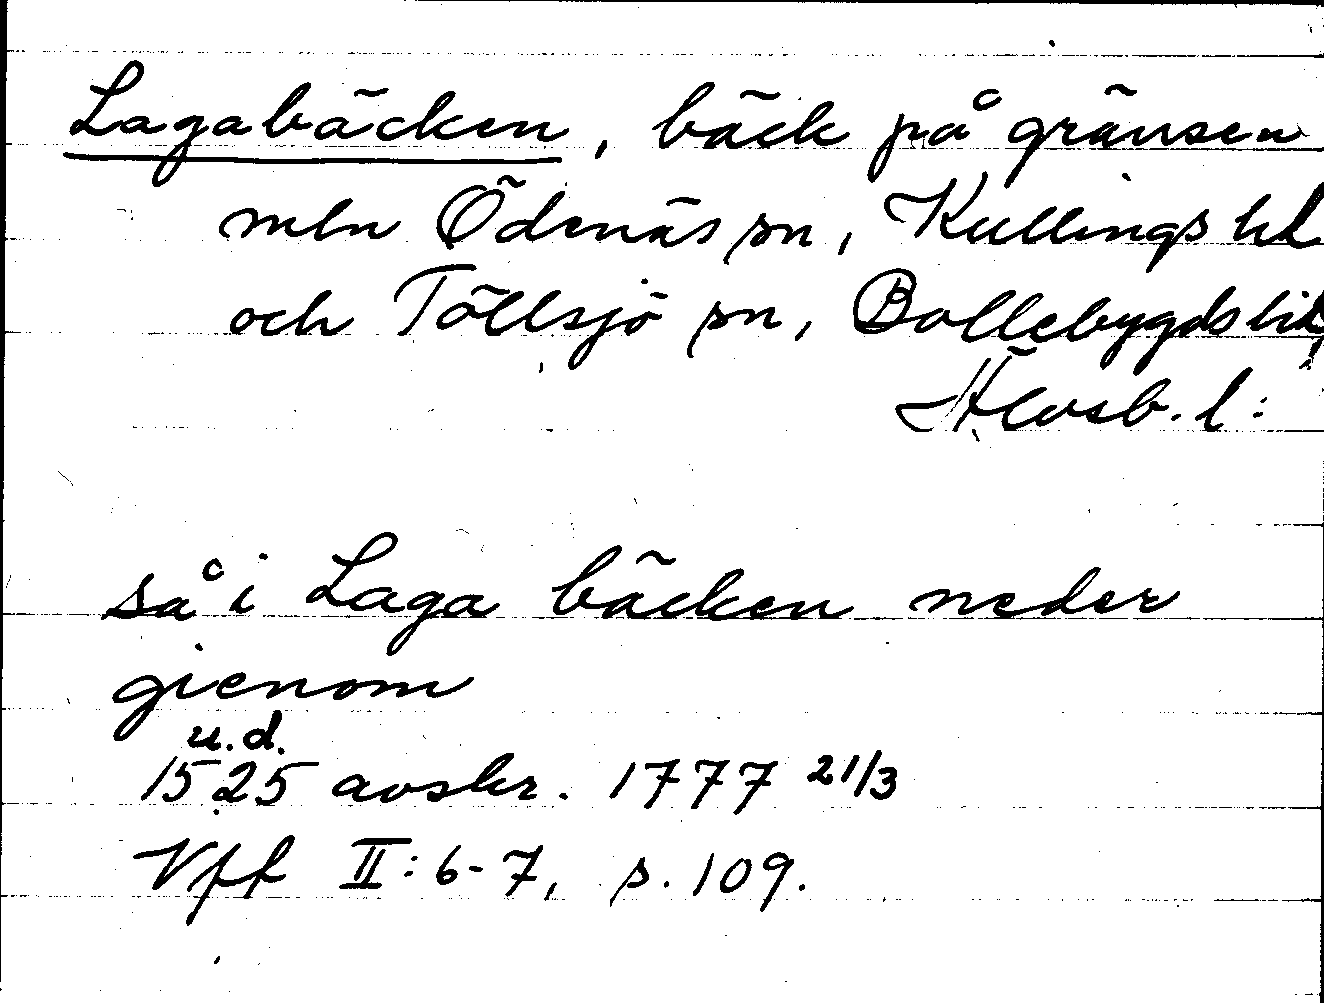 Lagabäcken, bäck på gränsen
mln Ödenäs sn, Kullings hd
och Töllsjö sn, Bollebygds hd,
Älvsb. l:
så i Laga bäcken neder
gienom
u.d.
1525 avskr. 1777 21/3
Vff II:6-7, s. 109.